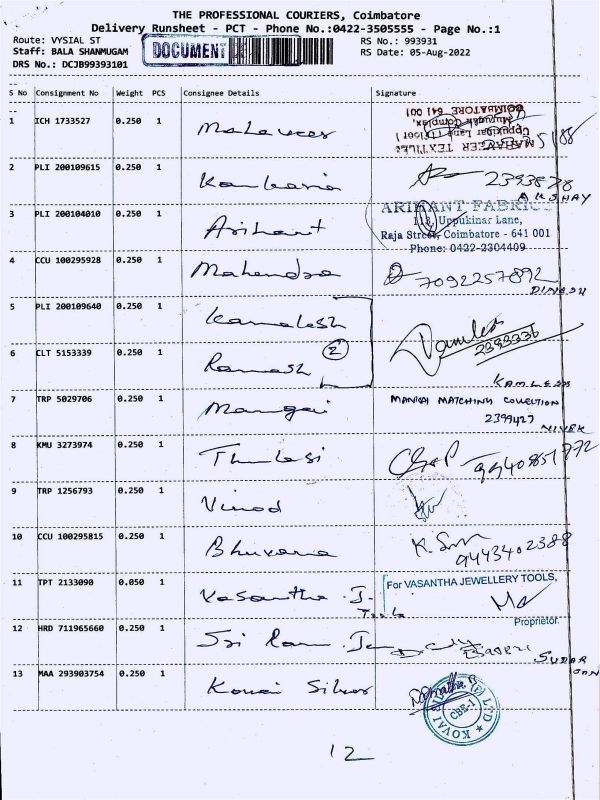 THE PROFESSIONAL COURIERS, Coimbatore
Delivery Runsheet - PCT - Phone No.:0422-3505555 - Page No.:1
Route: VYSIAL ST
RS No.: 993931
Staff: BALA SHANMUGAM
DOCUMENT
RS Date: 05-Aug-2022
DRS No.: DCJB99393101
S No Consignment No Weight PCS Consignee Details Signature
1 ICH 1733527 0.250 1 Mahaveer
MAHAVEER TEXTILES
COIMBATORE 641 001
2 PLI 200109615 0.250 1
AKSHAY
3 PLI 200104010 0.250 1 Arihant
ARIHANT FABRICS
113, Uppukinar Lane,
Raja Street, Coimbatore - 641 001
Phone: 0422-2304409
4 CCU 100295928 0.250 1 Mahendra 7092257892
DINESH
5 PLI 200109640 0.250 1 Kamalesh
2
2393336
6 CLT 5153339 0.250 1 Ramesh
KAMLESH
7 TRP 5029706 0.250 1 Mangai MANGAI MATCHING COLLECTION
2399427
VIVEK
8 KMU 3273974 0.250 1 Thulasi 9940851772
9 TRP 1256793 0.250 1 Vinod
10 CCU 100295815 0.250 1 Bhuvana
9443402388
11 TPT 2133090 0.050 1 Vasantha J.
Tools
For VASANTHA JEWELLERY TOOLS,
Proprietor.
12 HRD 711965660 0.250 1 Sri Ram
13 MAA 293903754 0.250 1 Kovai Silver
CBE-1
12